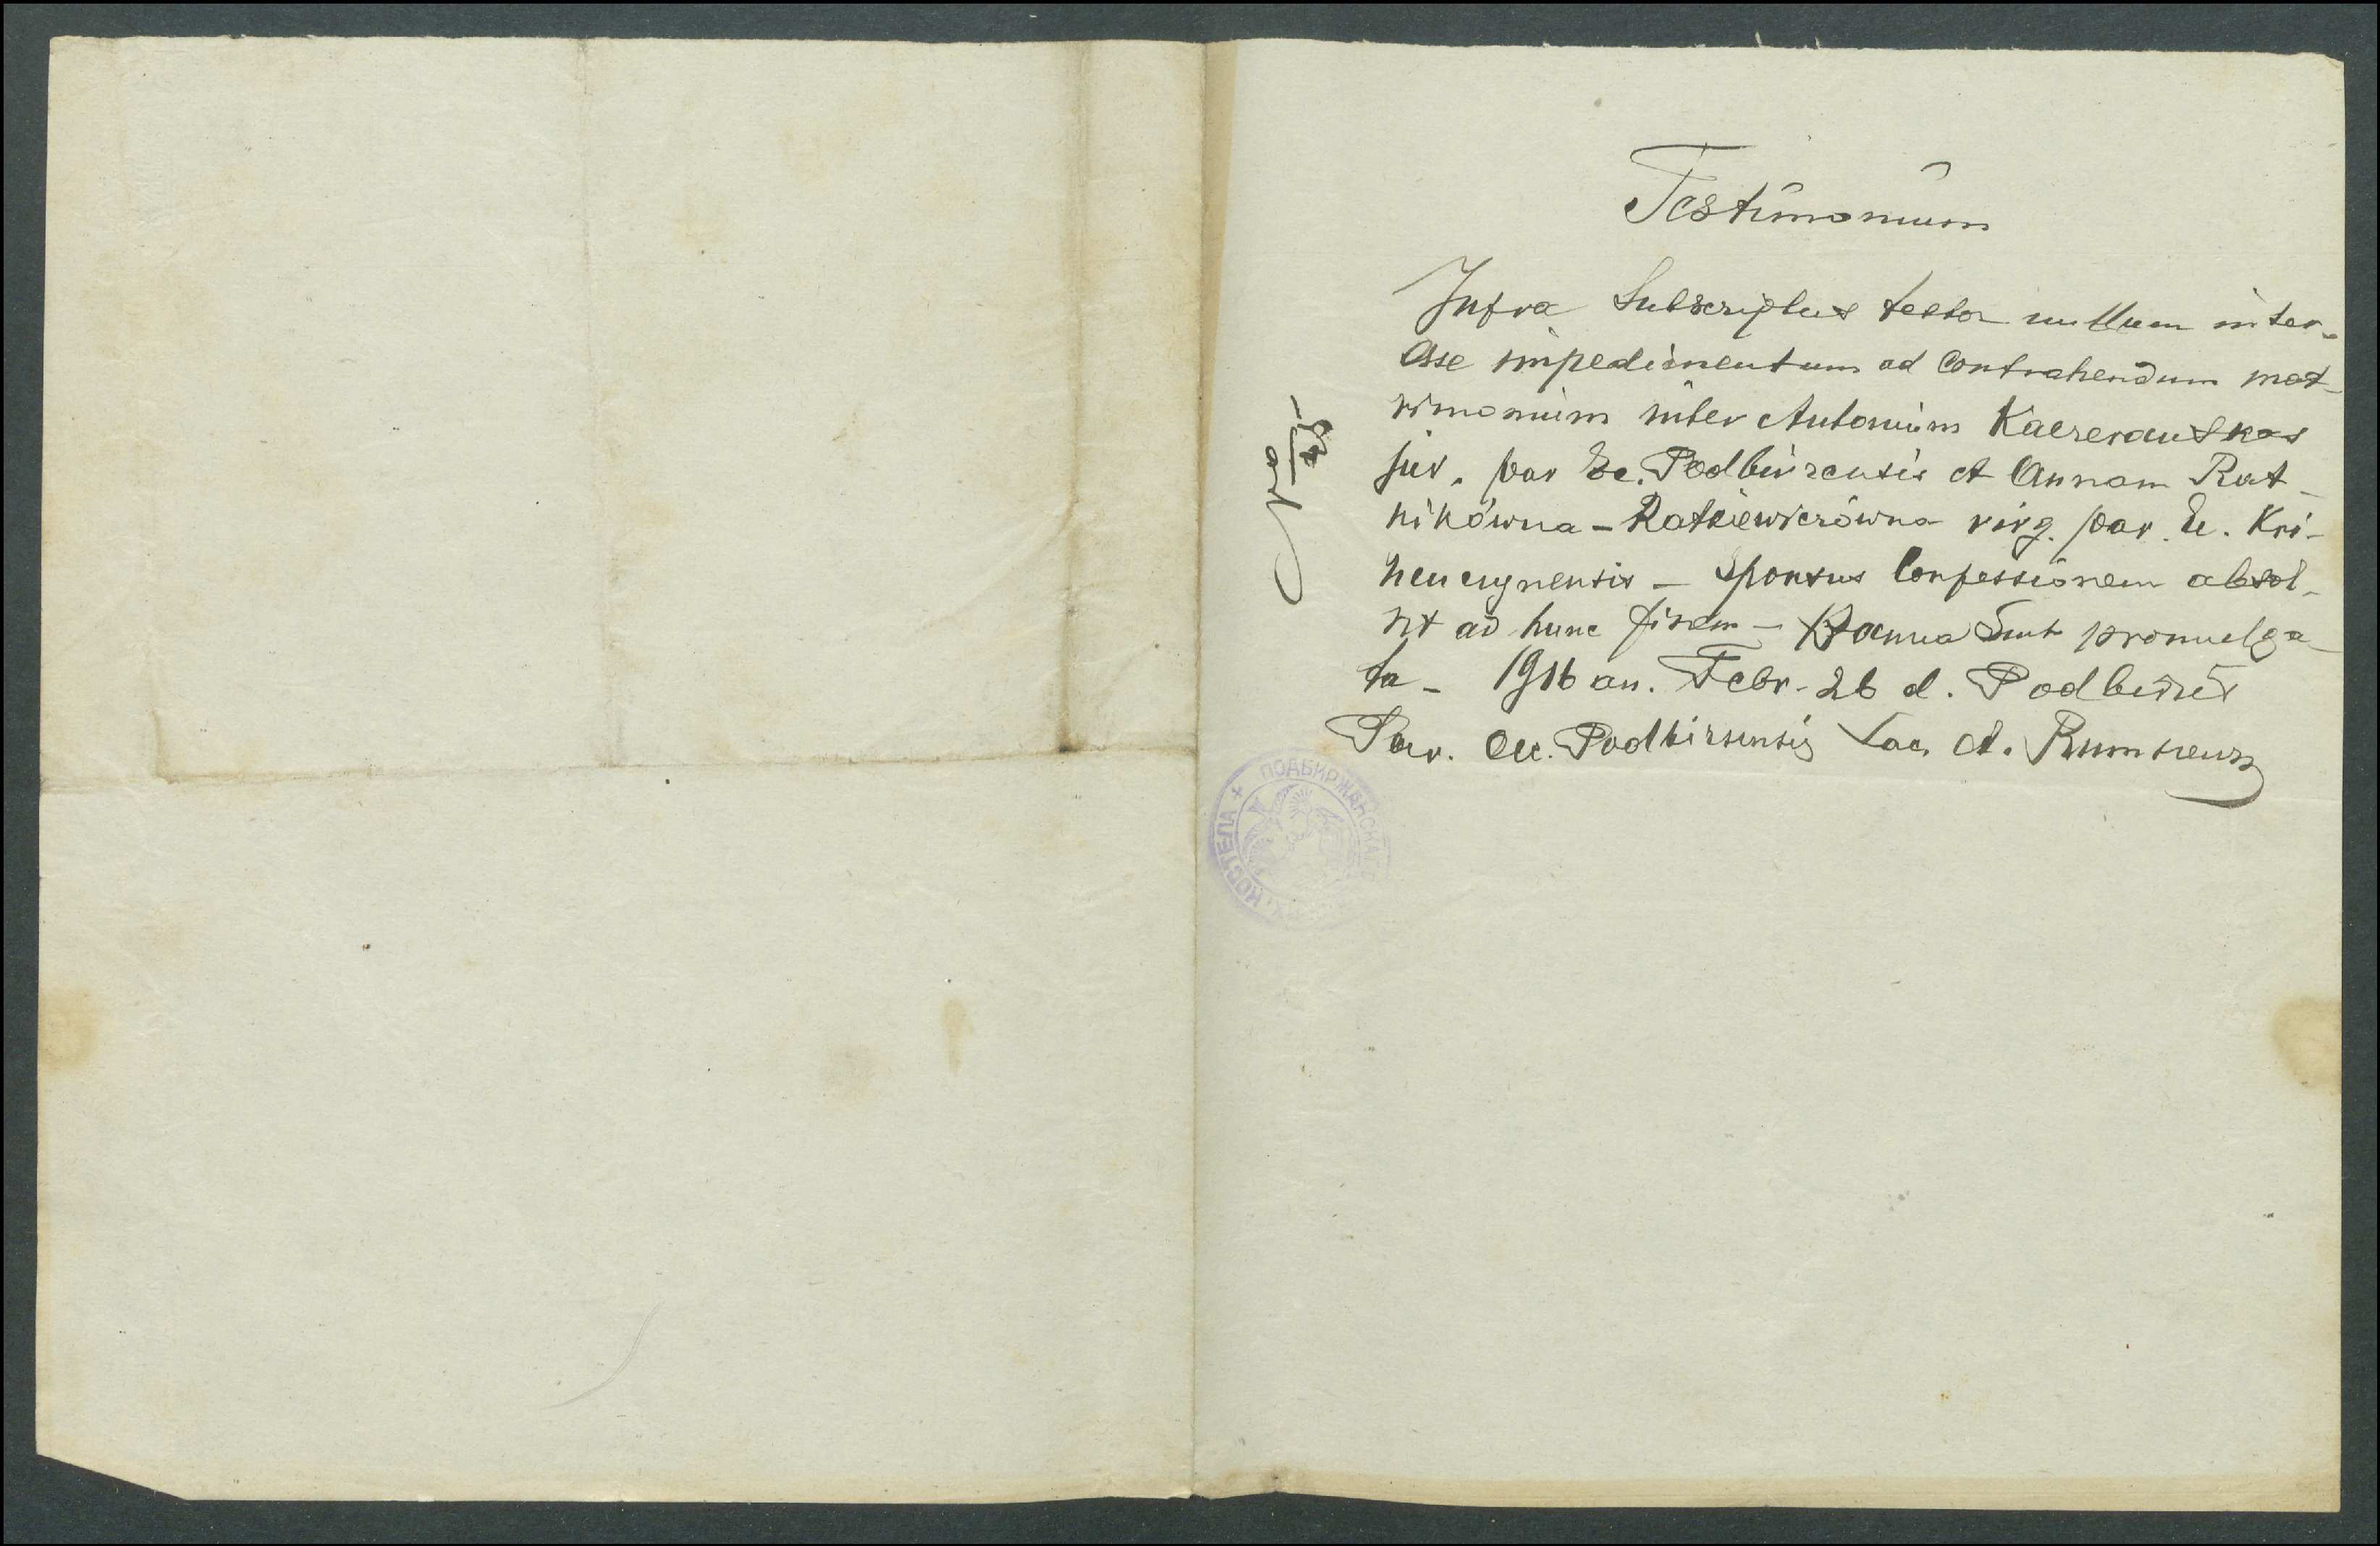 Testimonium
Infra Subscriptus testor nullum inter-
esse impedimentum ad contrahendum mat-
rimonium inter Antonium Kaczerauskas
juv. par Ec. Podbirzensis et Annam Rat-
nikówna - Ratkiewiczówna virg. par. Ec. Kri-
nencynensis - Sponsus Confessionem absol-
vit ad hunc finem - Banna Sunt promulga-
ta - 1916 an. Febr. 26 d. Podbirże
Par. Ec. Podbirsensis Sac. A. Rumszewicz
ПОДБИРЖАНСКАГО
КОСТЕЛА +